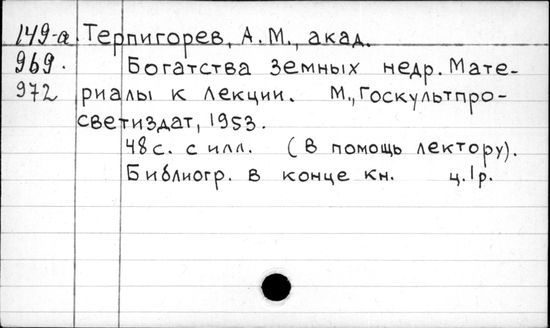 149-а Терпигорев, А.М., акад.
969. Богатства земных недр. Мате-
972 риалы к лекции. М., Госкультпро-
светиздат, 1953.
48 с. с илл. (В помощь лектору).
Библиогр. в конце кн. ц. 1р.